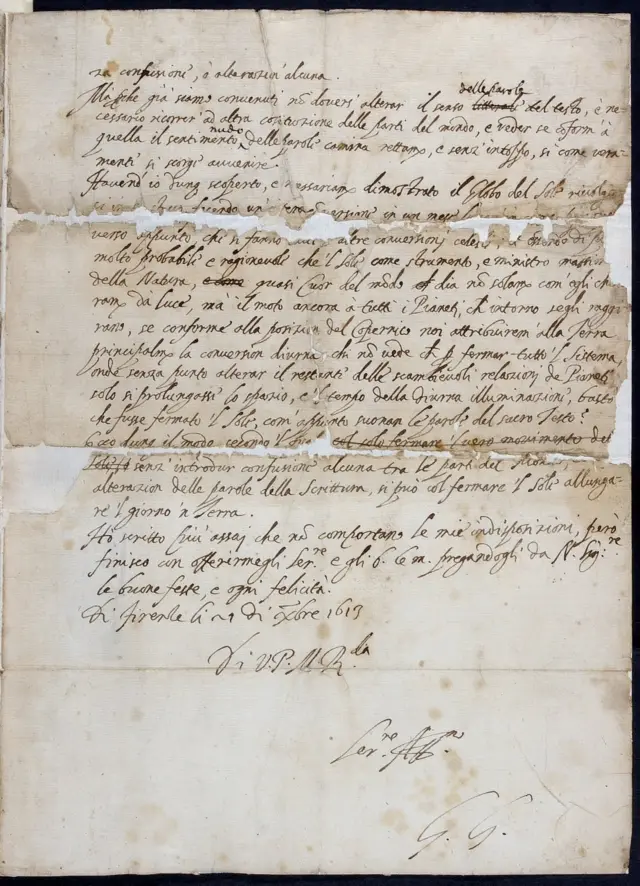 za confusione, ò alterazion' alcuna.
delle parole
Mà che già siamo convenuti nõ doversi alterar il senso litterale del testo, è ne-
cessario ricorrer ad altra costituzione delle parti del mondo, e veder se cõforme à
quella il sentimento nudo delle parole camina rettamᵉ, e senz' intoppo, si come vera-
mente si scorge avvenire.
Havend' io dunq scoperto, e necessariamᵉ dimostrato il Globo del Sole rivolgersi
in se stesso facendo un' intera conversione in un mese
verso appunto, che si fanno altre conversioni celesti,
molto probabile e ragionevole che 'l Sole come strumento, e ministro massimo
della Natura, e come quasi Cuor del mõdo dia nõ solamᵉ com' egli chia-
ramᵉ dà luce, mà il moto ancora à tutti i Pianeti, cħ intorno segli raggi-
rano, se conforme alla posizion del Copernico noi attribuirem' alla Terra
principalmᵉ la conversion diurna chi nõ vede cħ ꝑ fermar tutto 'l Sistema,
onde senza punto alterar il restante delle scambievoli relazioni de Pianeti
solo si prolungasse lo spazio, e 'l tempo della diurna illuminazione, bastò
che fusse fermato 'l Sole, com' appunto suonan le parole del sacro Testo?
Ecco dunq il modo secondo 'l quale col solo fermare 'l vero movimento del
Sole senz' introdur confusione alcuna tra le parti del Mondo,
alterazion delle parole della Scrittura, si può col fermare 'l Sole allunga-
re 'l giorno 'n Terra.
Hò scritto più assai che nõ comportano le mie indisposizioni, però
finisco con offerirmegli Ser.ʳᵉ e gli b. le m. pregandogli da N. Sig.ʳᵉ
le buone feste, e ogni felicità.
Di Firenze li 21 di Xbre 1613
Di V. P. M. R.ᵈᵃ
Ser.ʳᵉ Aff.ᵐᵒ
G. G.